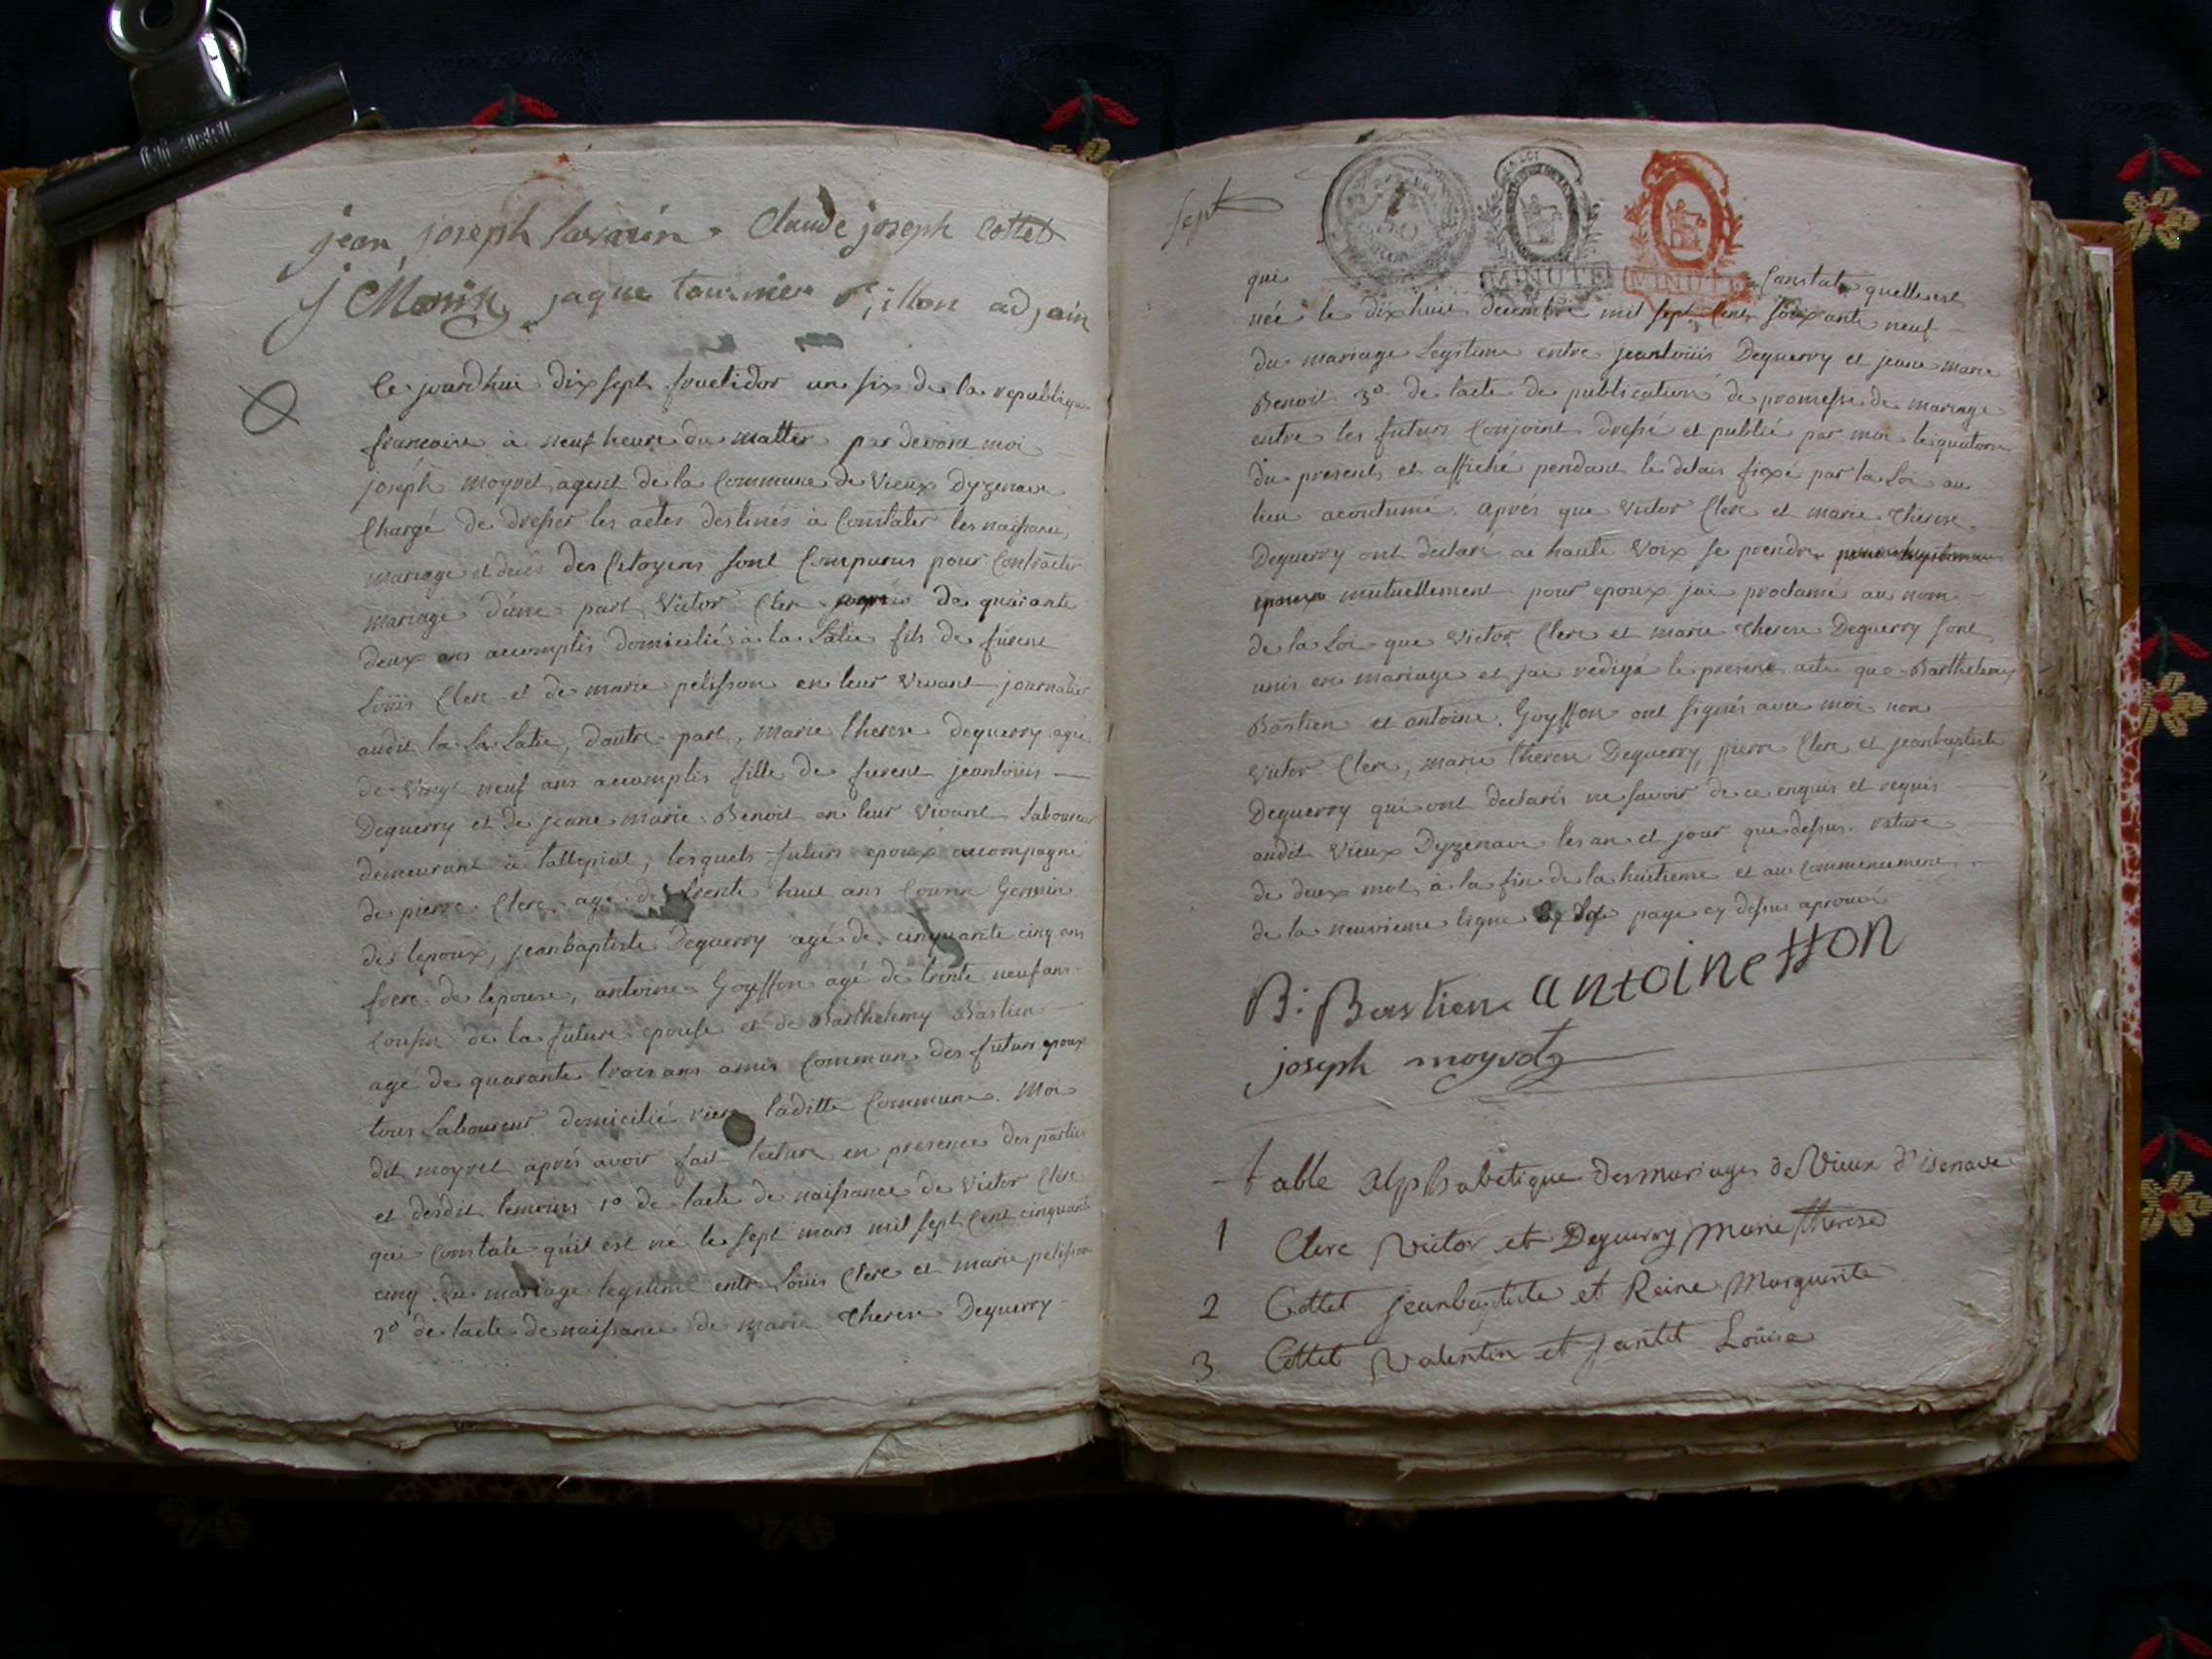 jean joseph Claude joseph Cottet
jaque tournier adjoin
Ce jourdhui dix sept fructidor an six de la republique
francaise à neuf heure du mattin par devant moi
joseph moyret agent de la Commune de Vieux Dyzenave
Chargé de dresser les actes destinés à Constater les naissance,
mariage et deces des Citoyens sont Comparus pour Contracter
mariage d'une part Victor Clerc de quarante
deux ans accomplis domicilié à la fils de furent
Loüis Clerc et de marie pelisson en leur Vivant journalier
audit la dautre part, marie therese deguerry agé
de Vingt neuf ans accomplis fille de furent jeanloüis
Deguerry et de jeane marie Benoit en leur Vivant Laboureur
demeurant à lesquels futurs epoux accompagné
de pierre Clerc agé de trente huit ans Cousin Germin
de lepoux, jeanbaptiste Deguerry agé de cinquante cinq ans
frere de lepouse, antoine Goyffon agé de trente neuf ans
Cousin de la future epouse et de Barthelemy Bastien
agé de quarante trois ans amis Commun des futurs epoux
tous Laboureur domicilié laditte Commune. Moi
dit moyret aprés avoir fait lecture en presence des parties
et desdit temoins 1º de lacte de naissance de Victor Clerc
qui Constate quil est né le sept mars mil sept Cent cinquante
cinq du mariage legitime entre Loüis Clerc et marie pelisson
2º de lacte de naissance de marie Therese Deguerry
Sept
50
MINUTE MINUTE
qui Constate quelle est
née le dix huit decembre mil sept Cent soixante neuf
du mariage Legitime entre jeanloüis Deguerry et jeane marie
Benoit 3º de lacte de publication de promesse de mariage
entre les futurs Conjoint dressé et publié par moi le quatorze
du present et affiché pendant le delais fixé par la Loi au
lieu acoutumé. Aprés que Victor Clerc et marie Therese
Deguerry ont declaré a haute Voix se prendre
mutuellement pour epoux jai proclamé au nom
de la Loi que Victor Clerc et marie Therese Deguerry sont
unis en mariage et jai redigé le present acte que Barthelemy
Bastien et antoine Goyffon ont signés avec moi non
Victor Clerc, marie therese Deguerry, pierre Clerc et jeanbaptiste
Deguerry qui ont declarés ne savoir de ce enquis et requis
audit Vieux Dyzenave les an et jour que dessus. rature
de deux mot à la fin de la huitieme et au Commencement
de la neuvieme ligne page cy dessus aprouvé
B: Bastien antoine ffon
joseph moyret
table alphabetique des mariages de Vieux d'isenave
1 Clerc Victor et Deguerry Marie therese
2 Cottet jeanbaptiste et Reine Marguerite
3 Cottet Valentin et jantet Loüise